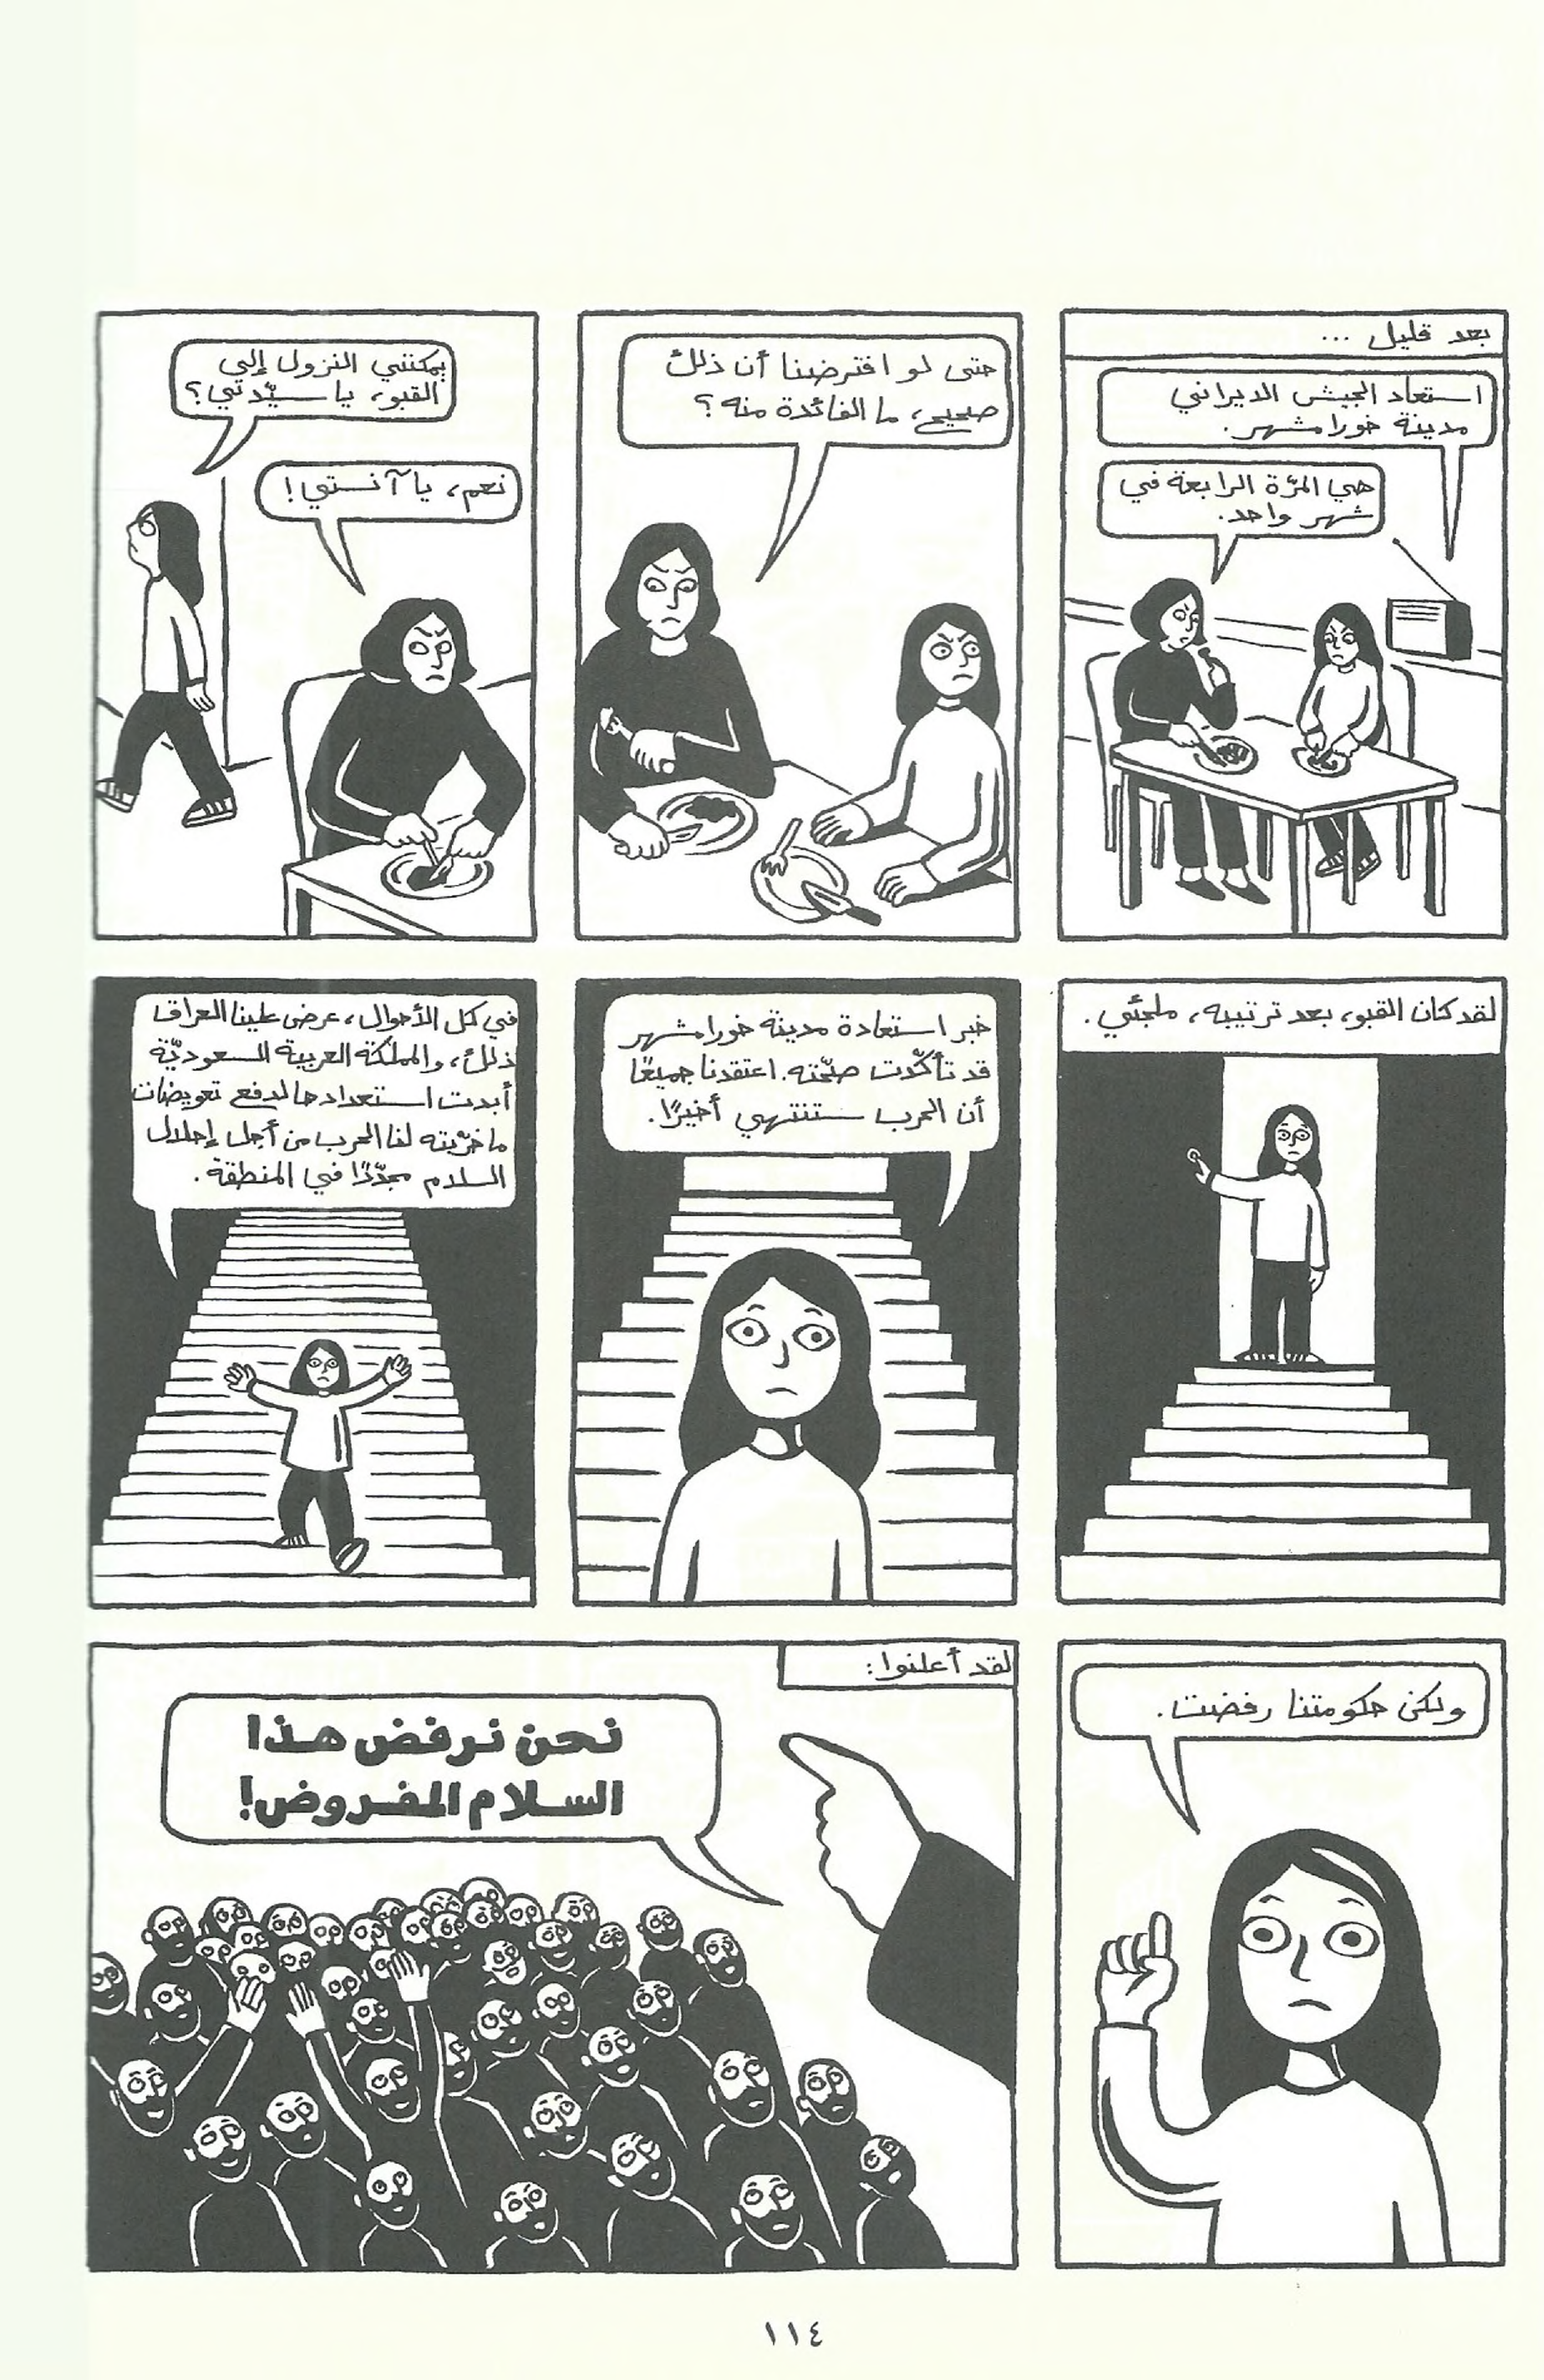 بعد قليل ...
استعاد الجيش الايراني
مدينة خورامشهر.
هي المرّة الرابعة في
شهر واحد.
حتى لو افترضنا أن ذلك
صحيح، ما الفائدة منه؟
يمكنني النزول إلى
القبو، يا سيّدتي؟
نعم، يا آنستي!
لقد كان القبو، بعد ترتيبه، ملجئي.
خبر استعادة مدينة خورامشهر
قد تأكّدت صحّته. اعتقدنا جميعًا
أن الحرب ستنتهي أخيرًا.
في كل الأحوال، عرض علينا العراق
ذلك، والمملكة العربية السعوديّة
أبدت استعدادها لدفع تعويضات
ما خرّبته لنا الحرب من أجل إحلال
السلام مجدّدًا في المنطقة.
ولكن حكومتنا رفضت.
لقد أعلنوا:
نحن نرفض هذا
السلام المفروض!
١١٤